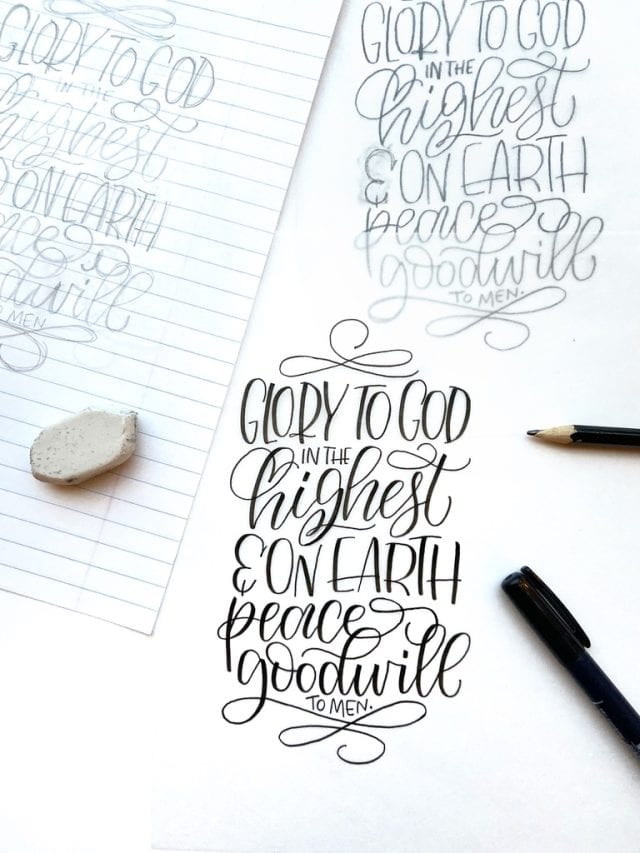 GLORY TO GOD
IN THE
highest
ON EARTH
MEN
GLORY TO GOD
IN THE
highest
& ON EARTH
peace
goodwill
TO MEN.
GLORY TO GOD
IN THE
highest
& ON EARTH
peace
goodwill
TO MEN.